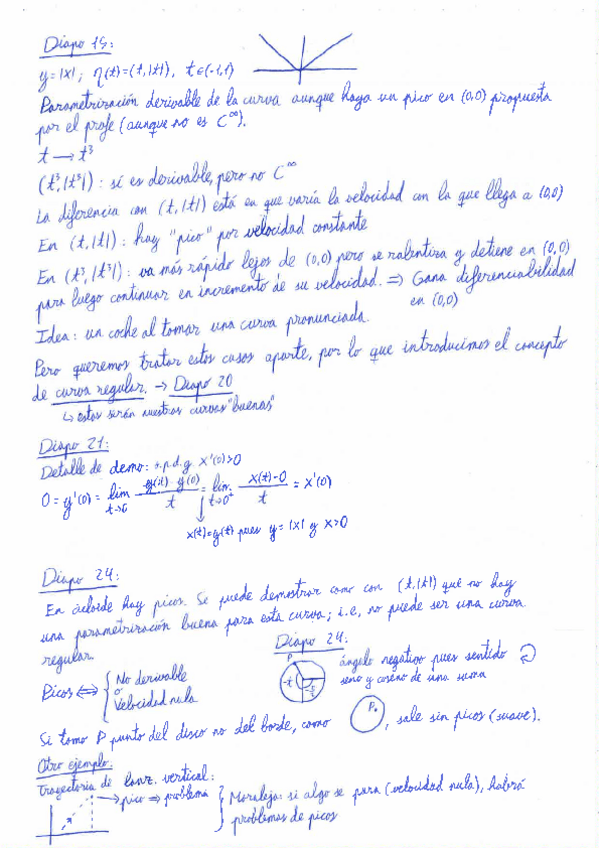 Diapo 19:
y=|x| ; η(t)=(t,|t|), t∈(-1,1)
Parametrización derivable de la curva aunque haya un pico en (0,0) propuesta
por el profe (aunque no es C^∞).
t → t³
(t³,|t³|): sí es derivable, pero no C^∞
La diferencia con (t,|t|) está en que varía la velocidad con la que llega a (0,0)
En (t,|t|): hay "pico" por velocidad constante
En (t³,|t³|): va más rápido lejos de (0,0) pero se ralentiza y detiene en (0,0)
para luego continuar en incremento de su velocidad. ⇒ Gana diferenciabilidad
en (0,0)
Idea: un coche al tomar una curva pronunciada.
Pero queremos tratar estos casos aparte, por lo que introducimos el concepto
de curva regular. → Diapo 20
↳ estas serán nuestras curvas "buenas"
Diapo 21:
Detalle de demo: s.p.d.g. x'(0)>0
0 = y'(0) = lim t→0 y(t)-y(0) / t = lim t→0⁺ x(t)-0 / t = x'(0)
x(t)=y(t) pues y=|x| y x>0
Diapo 24:
En cicloide hay picos. Se puede demostrar como con (t,|t|) que no hay
una parametrización buena para esta curva; i.e, no puede ser una curva
regular.
Diapo 24:
P
-t
ángulo negativo pues sentido ↻
seno y coseno de una suma
Picos ⇔ { No derivable
o
Velocidad nula
Si tomo P punto del disco no del borde, como P. , sale sin picos (suave).
Otro ejemplo:
Trayectoria de lanz. vertical:
→ pico ⇒ problema
} Moraleja: si algo se para (velocidad nula), habrá
problemas de picos